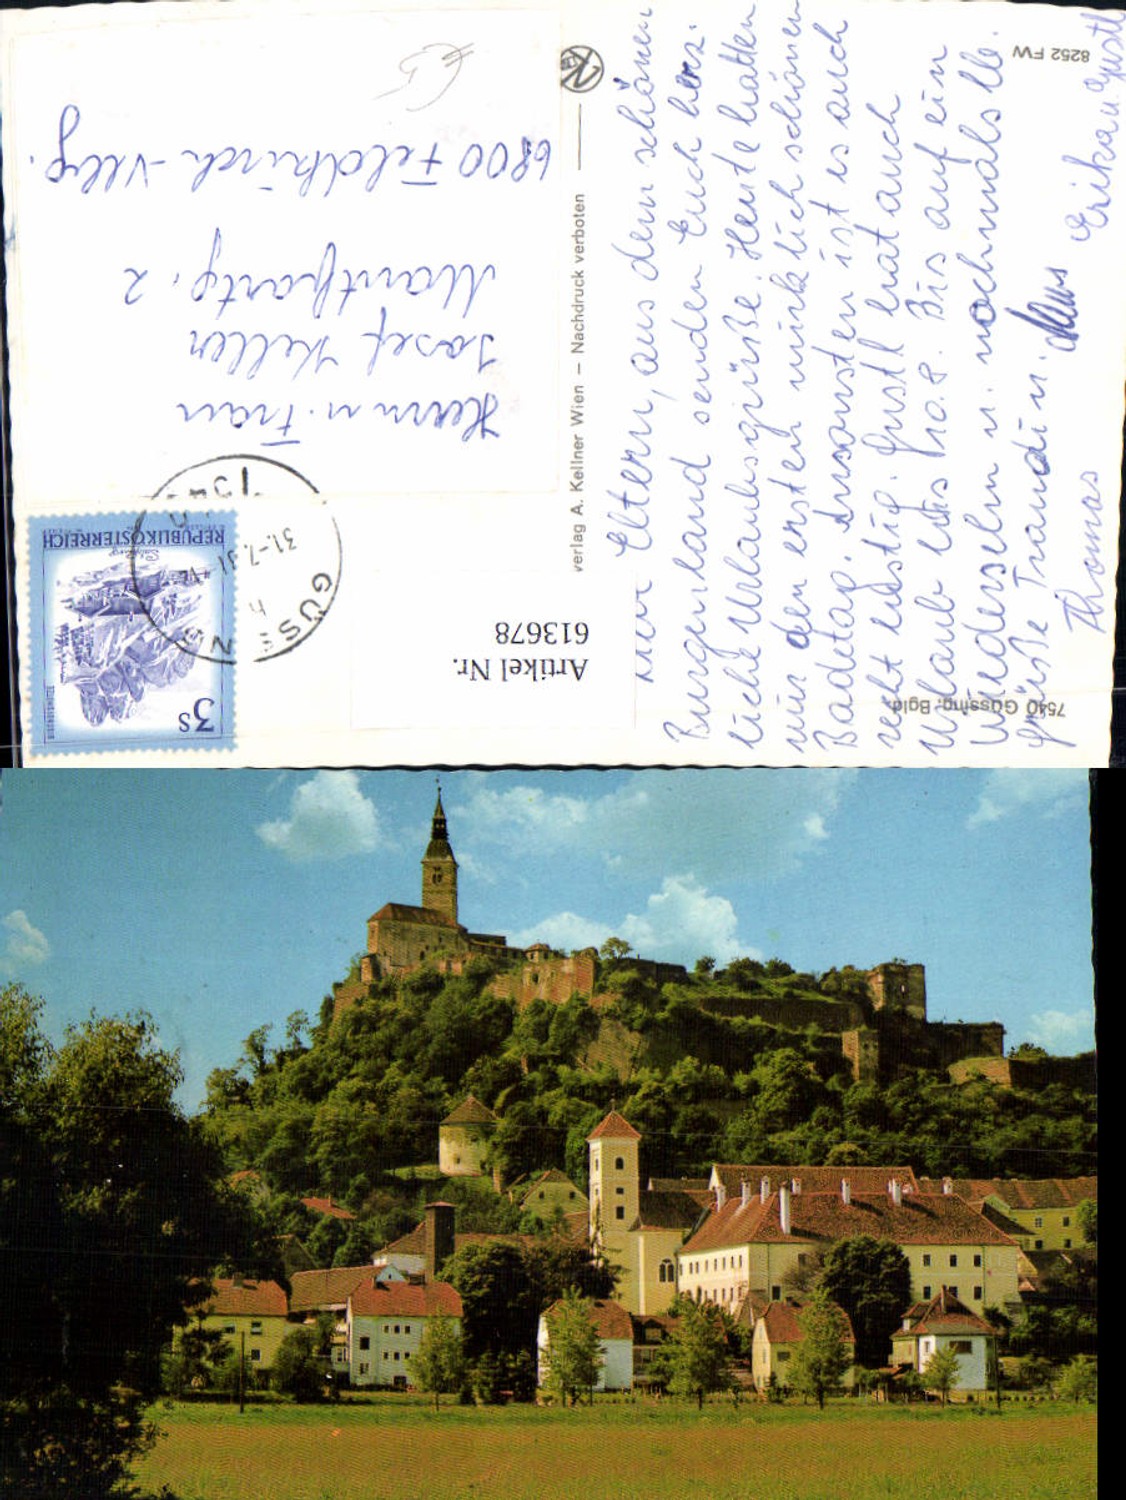 8252 FW
Liebe Eltern, aus dem schönen
Burgenland senden Euch herz-
liche Urlaubsgrüße. Heute hatten
wir den ersten wirklich schönen
Badetag. Ansonsten ist es auch
recht lustig. Gustl hat auch
Urlaub bis 8. Bis auf ein
Wiedersehn u. nochmals lb.
Grüße Traudi u.
Thomas Erika u. Gustl
7540 Güssing, Bgld.
verlag A. Kellner Wien – Nachdruck verboten
REPUBLIK ÖSTERREICH
3 S
GÜSSING
31.-7.81
7540
Herrn u. Frau
Josef Keller
2
6800 Feldkirch
Artikel Nr.
613678